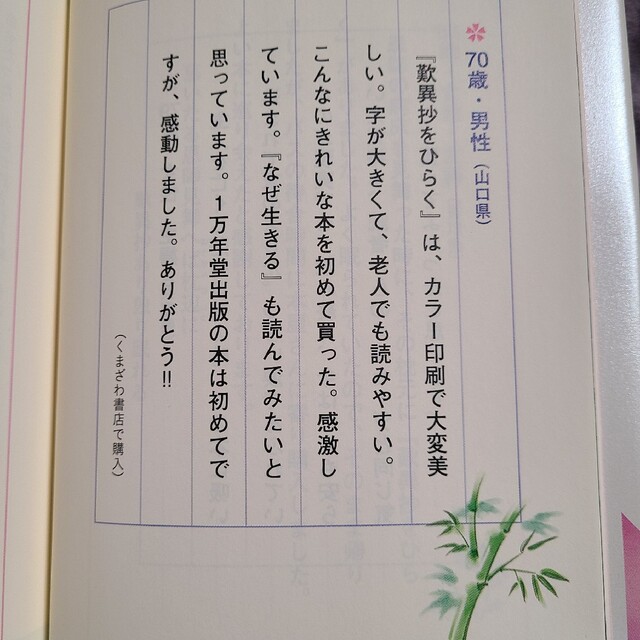 70歳・男性（山口県）
『歎異抄をひらく』は、カラー印刷で大変美
しい。字が大きくて、老人でも読みやすい。
こんなにきれいな本を初めて買った。感激し
ています。『なぜ生きる』も読んでみたいと
思っています。1万年堂出版の本は初めてで
すが、感動しました。ありがとう!!
（くまざわ書店で購入）